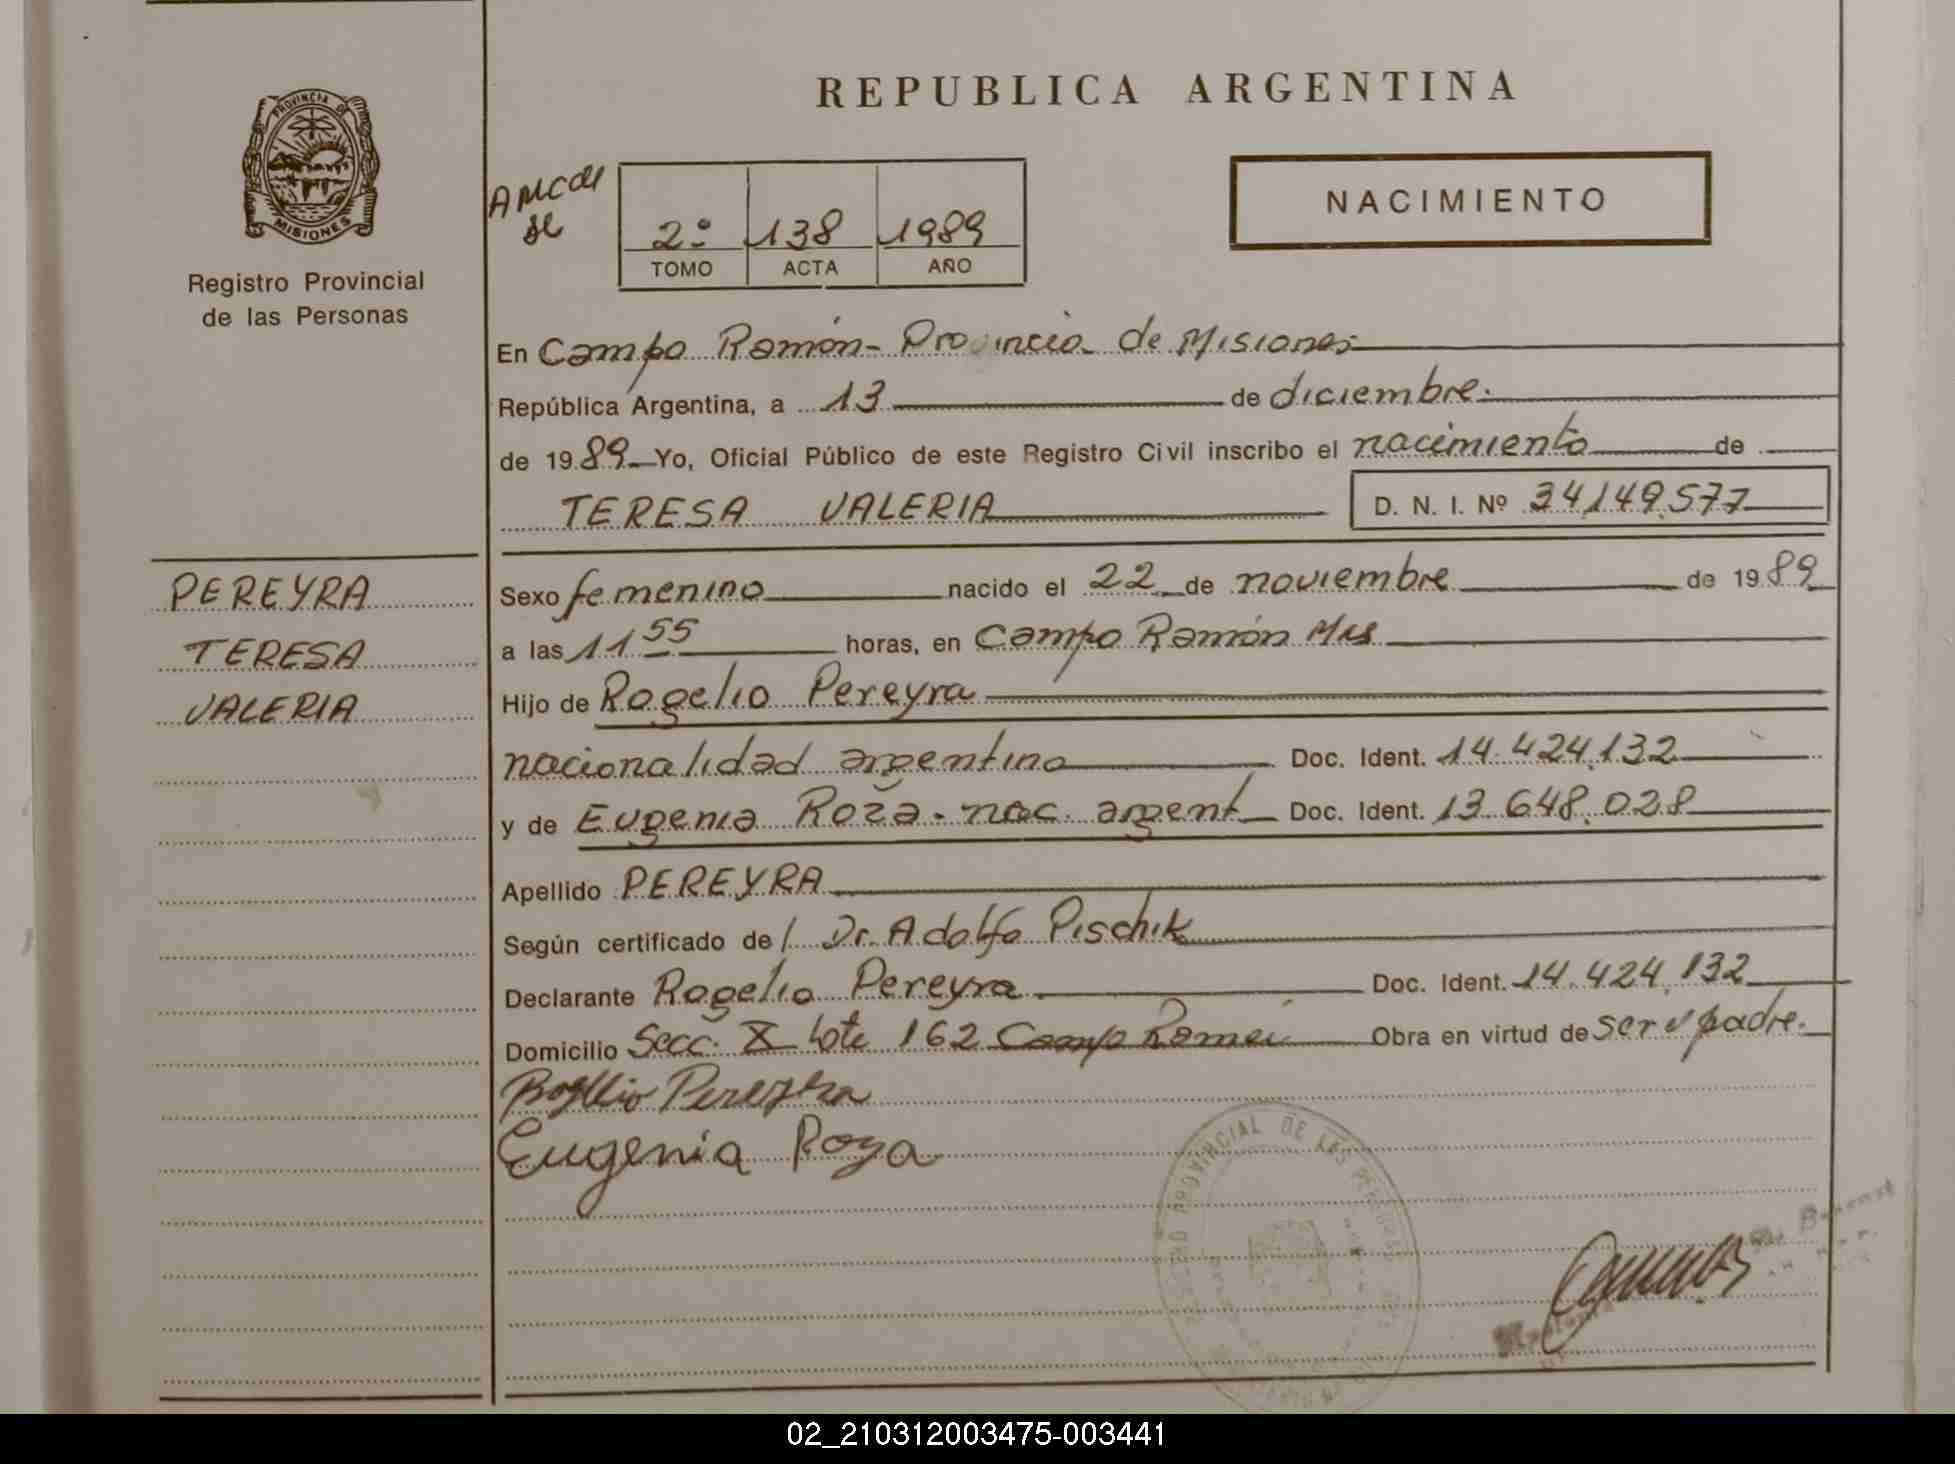 REPUBLICA ARGENTINA
PROVINCIA DE
MISIONES
Registro Provincial
de las Personas
2º 138 1989
TOMO ACTA AÑO
NACIMIENTO
En Campo Ramón - Provincia de Misiones
República Argentina, a 13 de diciembre.
de 1989 Yo, Oficial Público de este Registro Civil inscribo el nacimiento de
TERESA VALERIA D. N. I. Nº 34.149.577
PEREYRA
TERESA
VALERIA
Sexo femenino nacido el 22 de noviembre de 1989
a las 11 55 horas, en Campo Ramón Mis
Hijo de Rogelio Pereyra
nacionalidad argentino Doc. Ident. 14.424.132
y de Eugenia Roza - nac. argent Doc. Ident. 13.648.028
Apellido PEREYRA
Según certificado de/ Dr. Adolfo Pischik
Declarante Rogelio Pereyra Doc. Ident. 14.424.132
Domicilio Secc. X Lote 162 Campo Obra en virtud de ser padre.
Rogelio Pereyra
Eugenia Roza
PROVINCIAL DE LAS PERSONAS
02_210312003475-003441